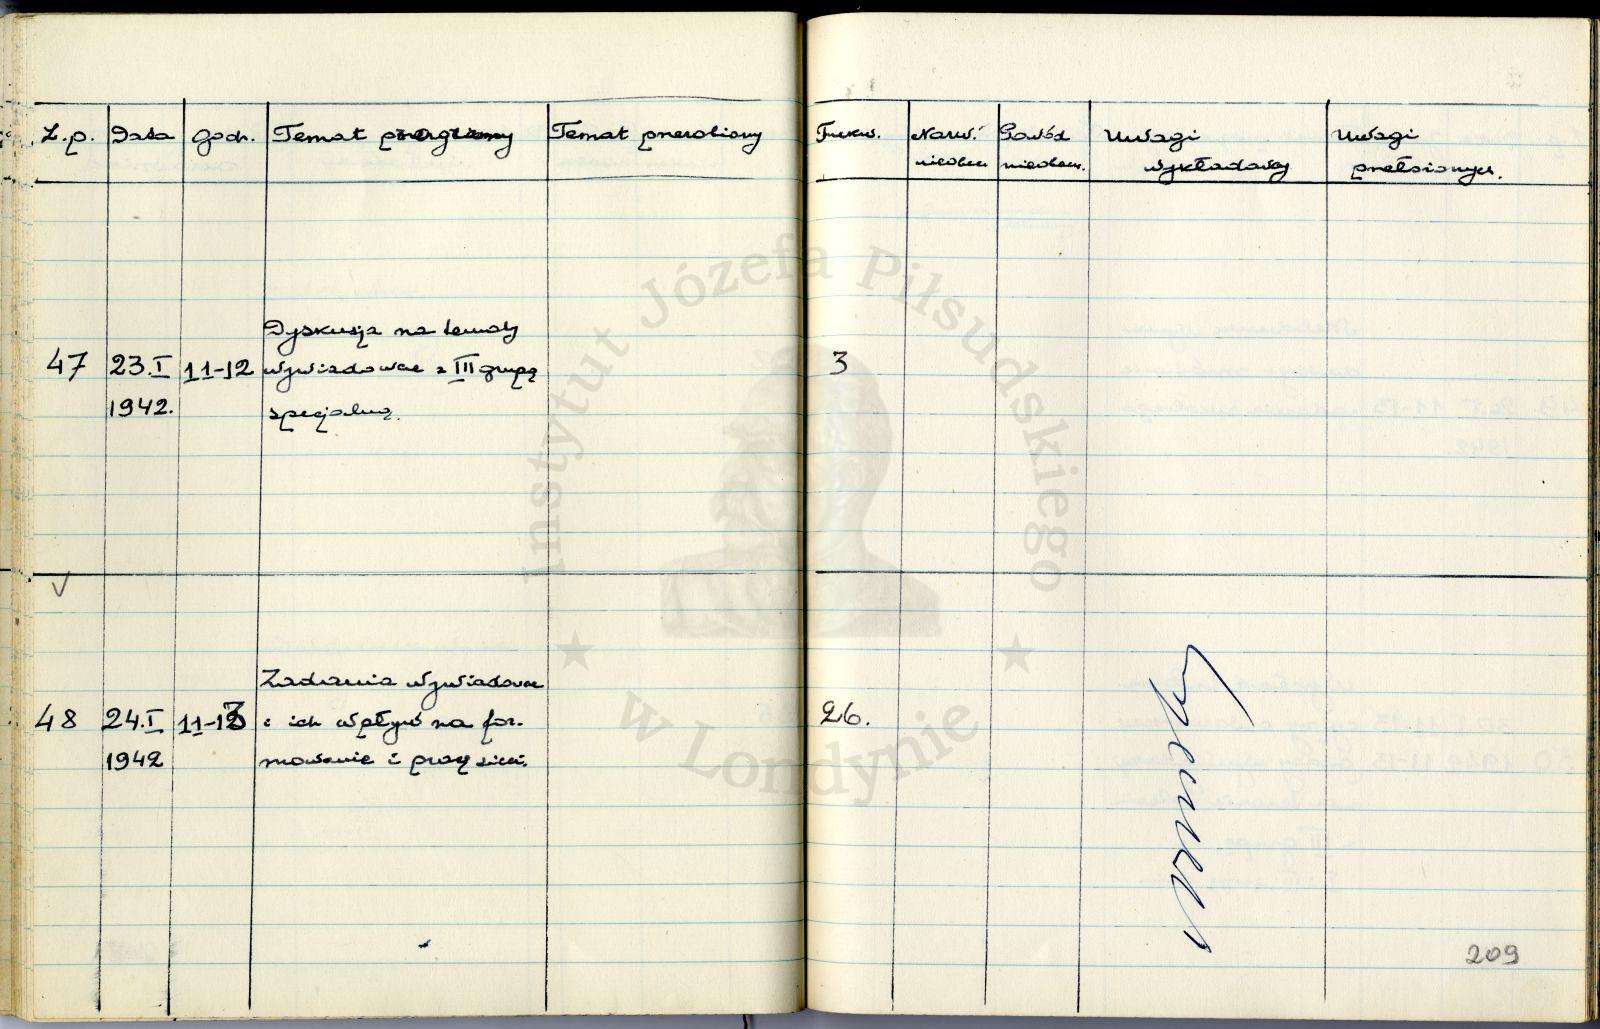 L.p. Data godz. Temat programowy Temat przerobiony Frekw. Nazw. Powód Uwagi Uwagi
nieobecn. nieobecn. wykładowcy przełożonych.
Dyskusja na tematy
47 23.I 11-12 wywiadowcze z III grupą 3
1942. specjalną.
Zadania wywiadowcze
48 24.I 11-13 i ich wpływ na for- 26.
1942 mowanie i pracę sieci.
209
Instytut Józefa Piłsudskiego
w Londynie